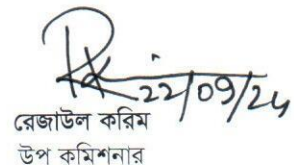 22/09/24
রেজাউল করিম
উপ কমিশনার